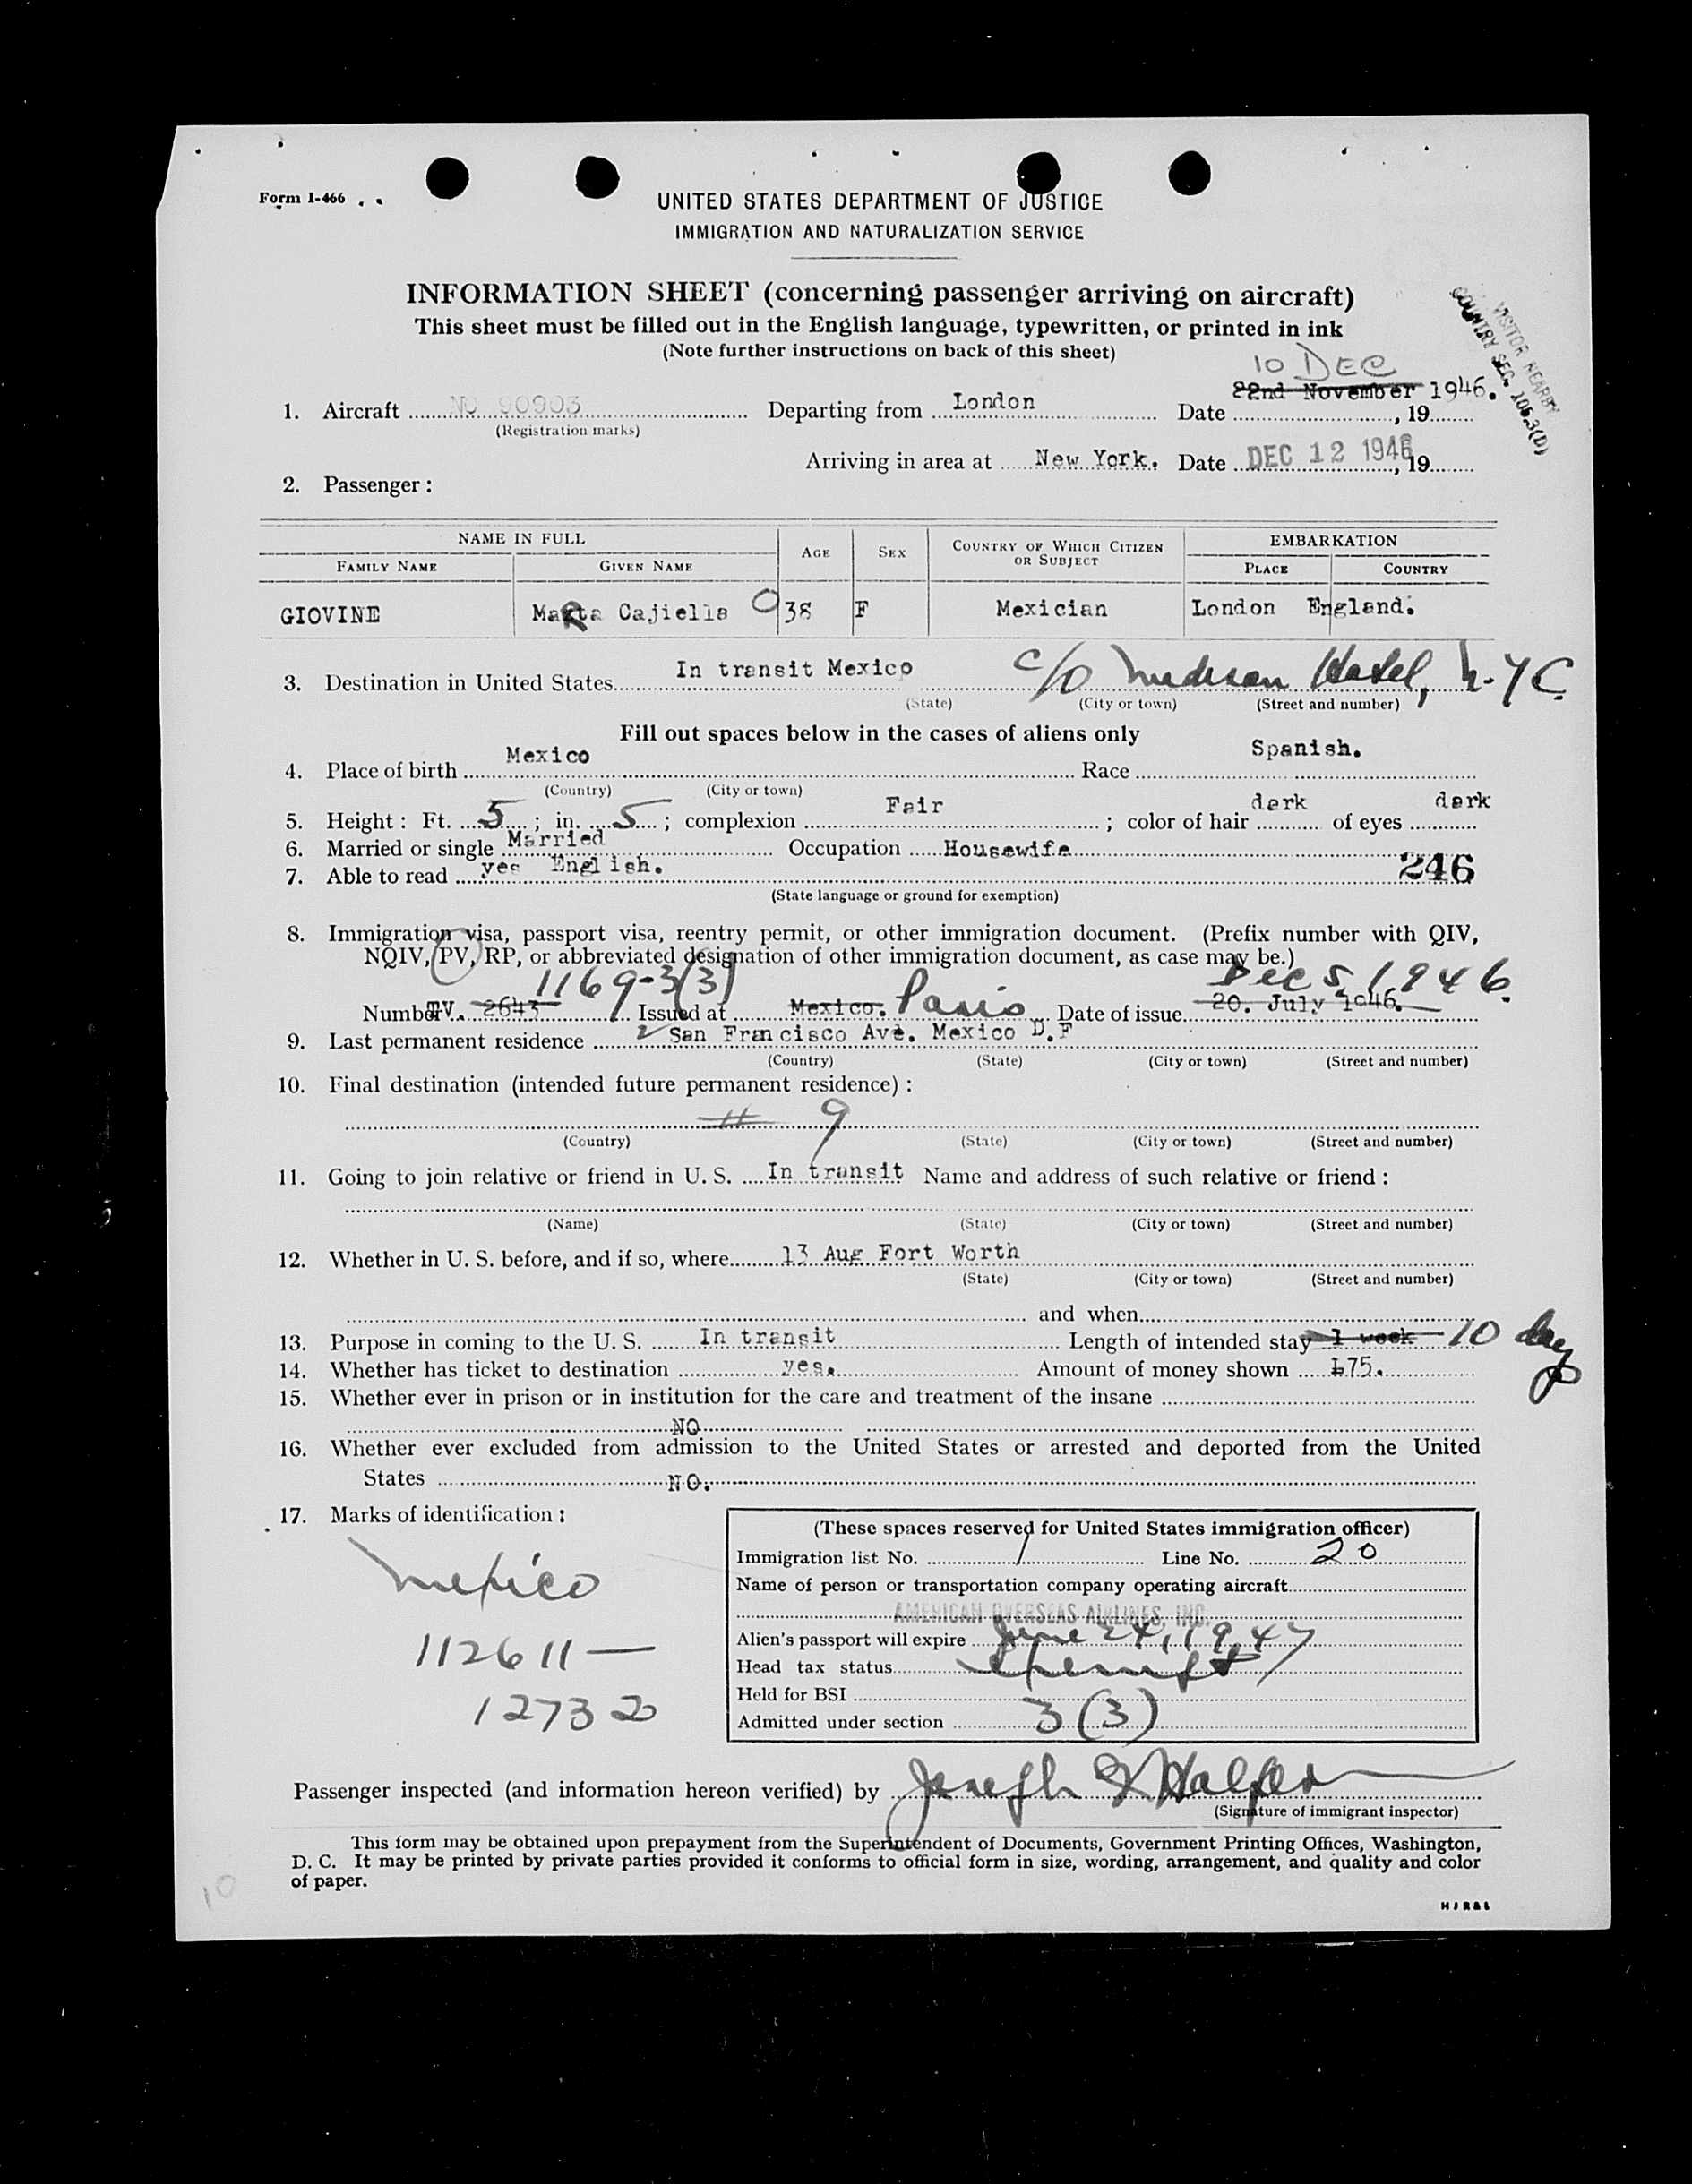 Form I-466
UNITED STATES DEPARTMENT OF JUSTICE
IMMIGRATION AND NATURALIZATION SERVICE
INFORMATION SHEET (concerning passenger arriving on aircraft)
This sheet must be filled out in the English language, typewritten, or printed in ink
(Note further instructions on back of this sheet)
VISITOR NEARBY
COUNTRY SEC. 105.3(D)
10 DEC
1. Aircraft NC 90903 Departing from London Date 22nd November 1946. , 19
(Registration marks)
Arriving in area at New York. Date DEC 12 1946, 19
2. Passenger :
NAME IN FULL AGE SEX COUNTRY OF WHICH CITIZEN OR SUBJECT EMBARKATION
FAMILY NAME GIVEN NAME PLACE COUNTRY
GIOVINE Marta Cajiells 38 F Mexician London England.
3. Destination in United States In transit Mexico c/o Madison Hotel, N.Y.C.
(State) (City or town) (Street and number)
Fill out spaces below in the cases of aliens only
4. Place of birth Mexico Race Spanish.
(Country) (City or town)
5. Height : Ft. 5 ; in. 5 ; complexion Fair ; color of hair dark of eyes dark
6. Married or single Married Occupation Housewife
7. Able to read yes English. 246
(State language or ground for exemption)
8. Immigration visa, passport visa, reentry permit, or other immigration document. (Prefix number with QIV,
NQIV, PV, RP, or abbreviated designation of other immigration document, as case may be.)
1169-3(3) Dec 5, 1946.
Number TV. 2643 Issued at Mexico. Paris Date of issue 20. July 1946.
9. Last permanent residence 2 San Francisco Ave. Mexico D.F
(Country) (State) (City or town) (Street and number)
10. Final destination (intended future permanent residence) :
# 9
(Country) (State) (City or town) (Street and number)
11. Going to join relative or friend in U. S. In transit Name and address of such relative or friend :
(Name) (State) (City or town) (Street and number)
12. Whether in U. S. before, and if so, where 13 Aug Fort Worth
(State) (City or town) (Street and number)
and when
13. Purpose in coming to the U. S. In transit Length of intended stay 1 week 10 days
14. Whether has ticket to destination yes. Amount of money shown £75.
15. Whether ever in prison or in institution for the care and treatment of the insane
NO
16. Whether ever excluded from admission to the United States or arrested and deported from the United
States NO.
17. Marks of identification :
Mexico
112611 —
12732
(These spaces reserved for United States immigration officer)
Immigration list No. 1 Line No. 20
Name of person or transportation company operating aircraft
AMERICAN OVERSEAS AIRLINES, INC.
Alien's passport will expire June 24, 1947
Head tax status exempt
Held for BSI
Admitted under section 3(3)
Passenger inspected (and information hereon verified) by Joseph Halper
(Signature of immigrant inspector)
This form may be obtained upon prepayment from the Superintendent of Documents, Government Printing Offices, Washington,
D. C. It may be printed by private parties provided it conforms to official form in size, wording, arrangement, and quality and color
of paper.
10